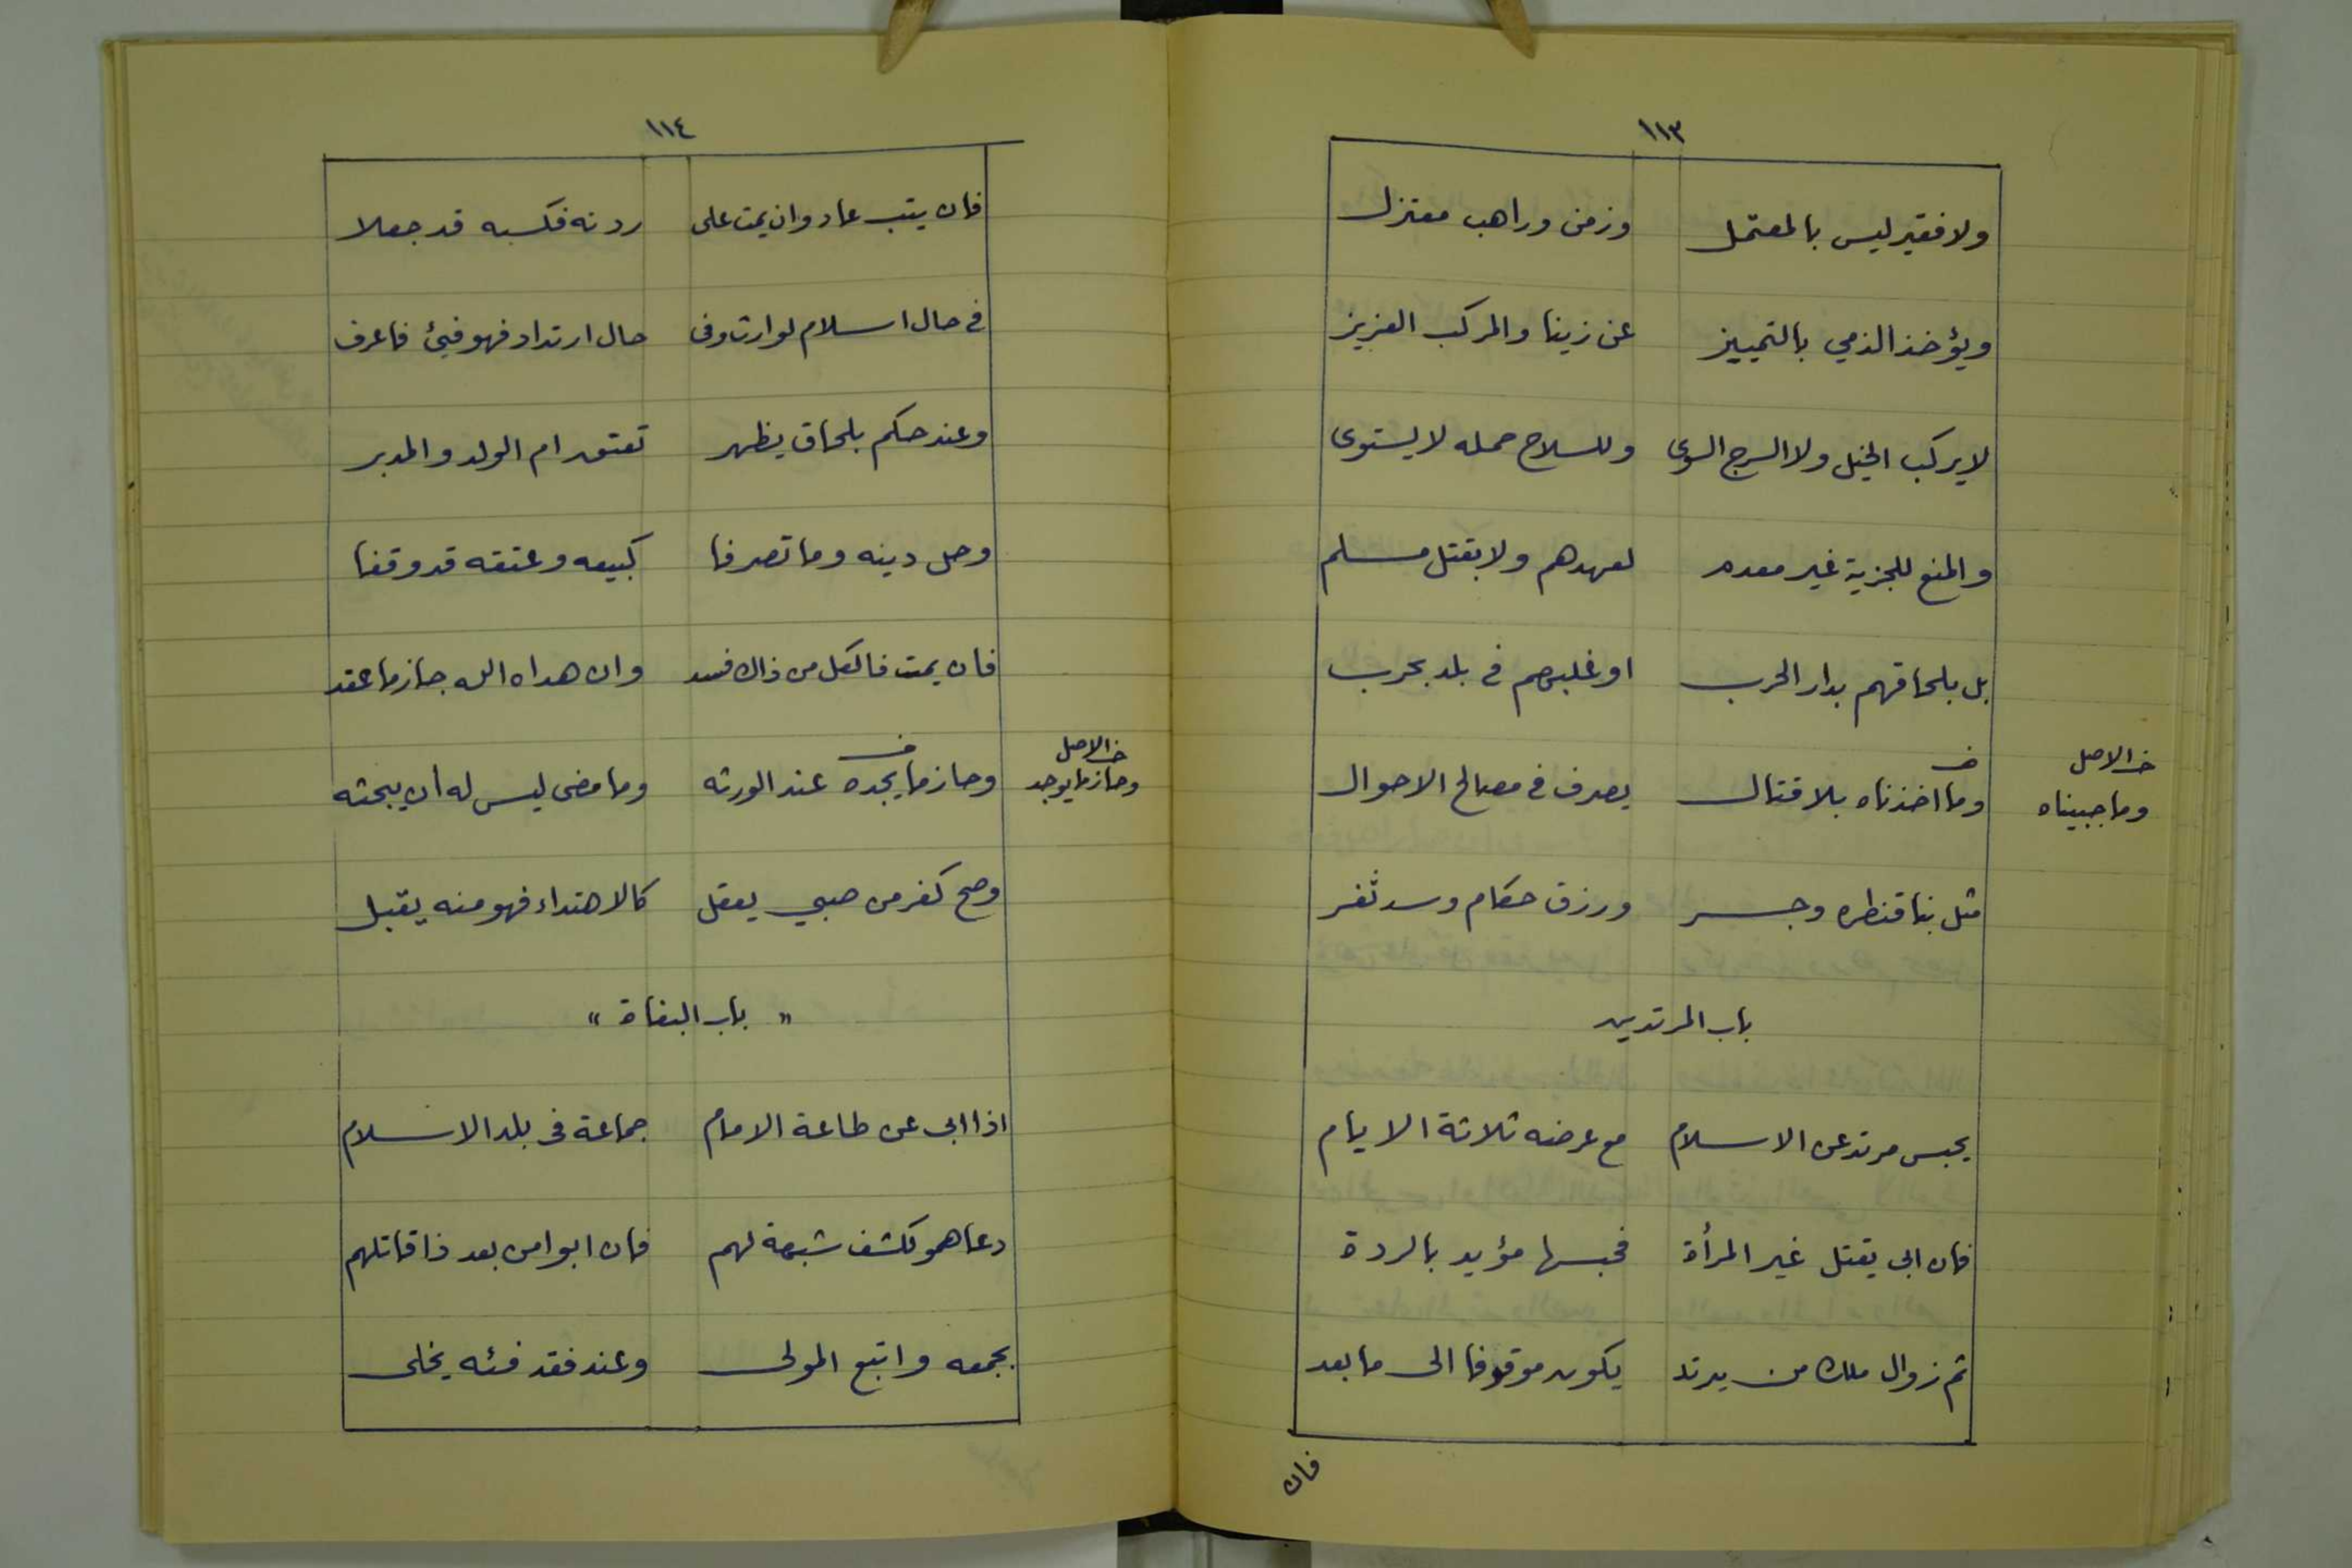 ١١٣
ولا فقير ليس بالمعتمل وزمن وراهب معتزل
ويؤخذ الذمي بالتمييز عن زينا والمركب العزيز
لا يركب الخيل ولا السرج السوى وللسلاح حمله لا يستوى
والمنع للجزية غير معدم لعهدهم ولا بقتل مسلم
بل بلحاقهم بدار الحرب او غلبهم في بلد بحرب
خ الاصل
وما اخذناه بلا قتال يصرف في مصالح الاحوال
وما جبيناه
مثل بنا قنطره وجسر ورزق حكام وسد ثغر
باب المرتدين
يحبس مرتد عن الاسلام مع عرضه ثلاثة الايام
فان ابى يقتل غير المرأة فحبسها مؤيد بالردة
ثم زوال ملك من يرتد يكون موقوفا الى ما بعد
فان
١١٤
فان يتب عاد وان يمت على ردته فكسبه قد جعلا
في حال اسلام لوارث وفى حال ارتداد فهو فيئ فاعرف
وعند حكم بلحاق يظهر تعتق ام الولد والمدبر
وحل دينه وما تصرفا كبيعه وعتقه قد وقفا
فان يمت فالكل من ذاك فسد وان هداه الله جاز ما عقد
خ الاصل
وحاز ما يوجد
وحاز ما يجده عند الورثه وما مضى ليس له ان يبحثه
وصح كفر من صبي يعقل كالاهتداء فهو منه يقبل
" باب البغاة "
اذا ابى عن طاعة الامام جماعة في بلد الاسلام
دعاهمو لكشف شبهة لهم فان ابوا من بعد ذا قاتلهم
بجمعه واتبع المولى وعند فقد فئه يخلى